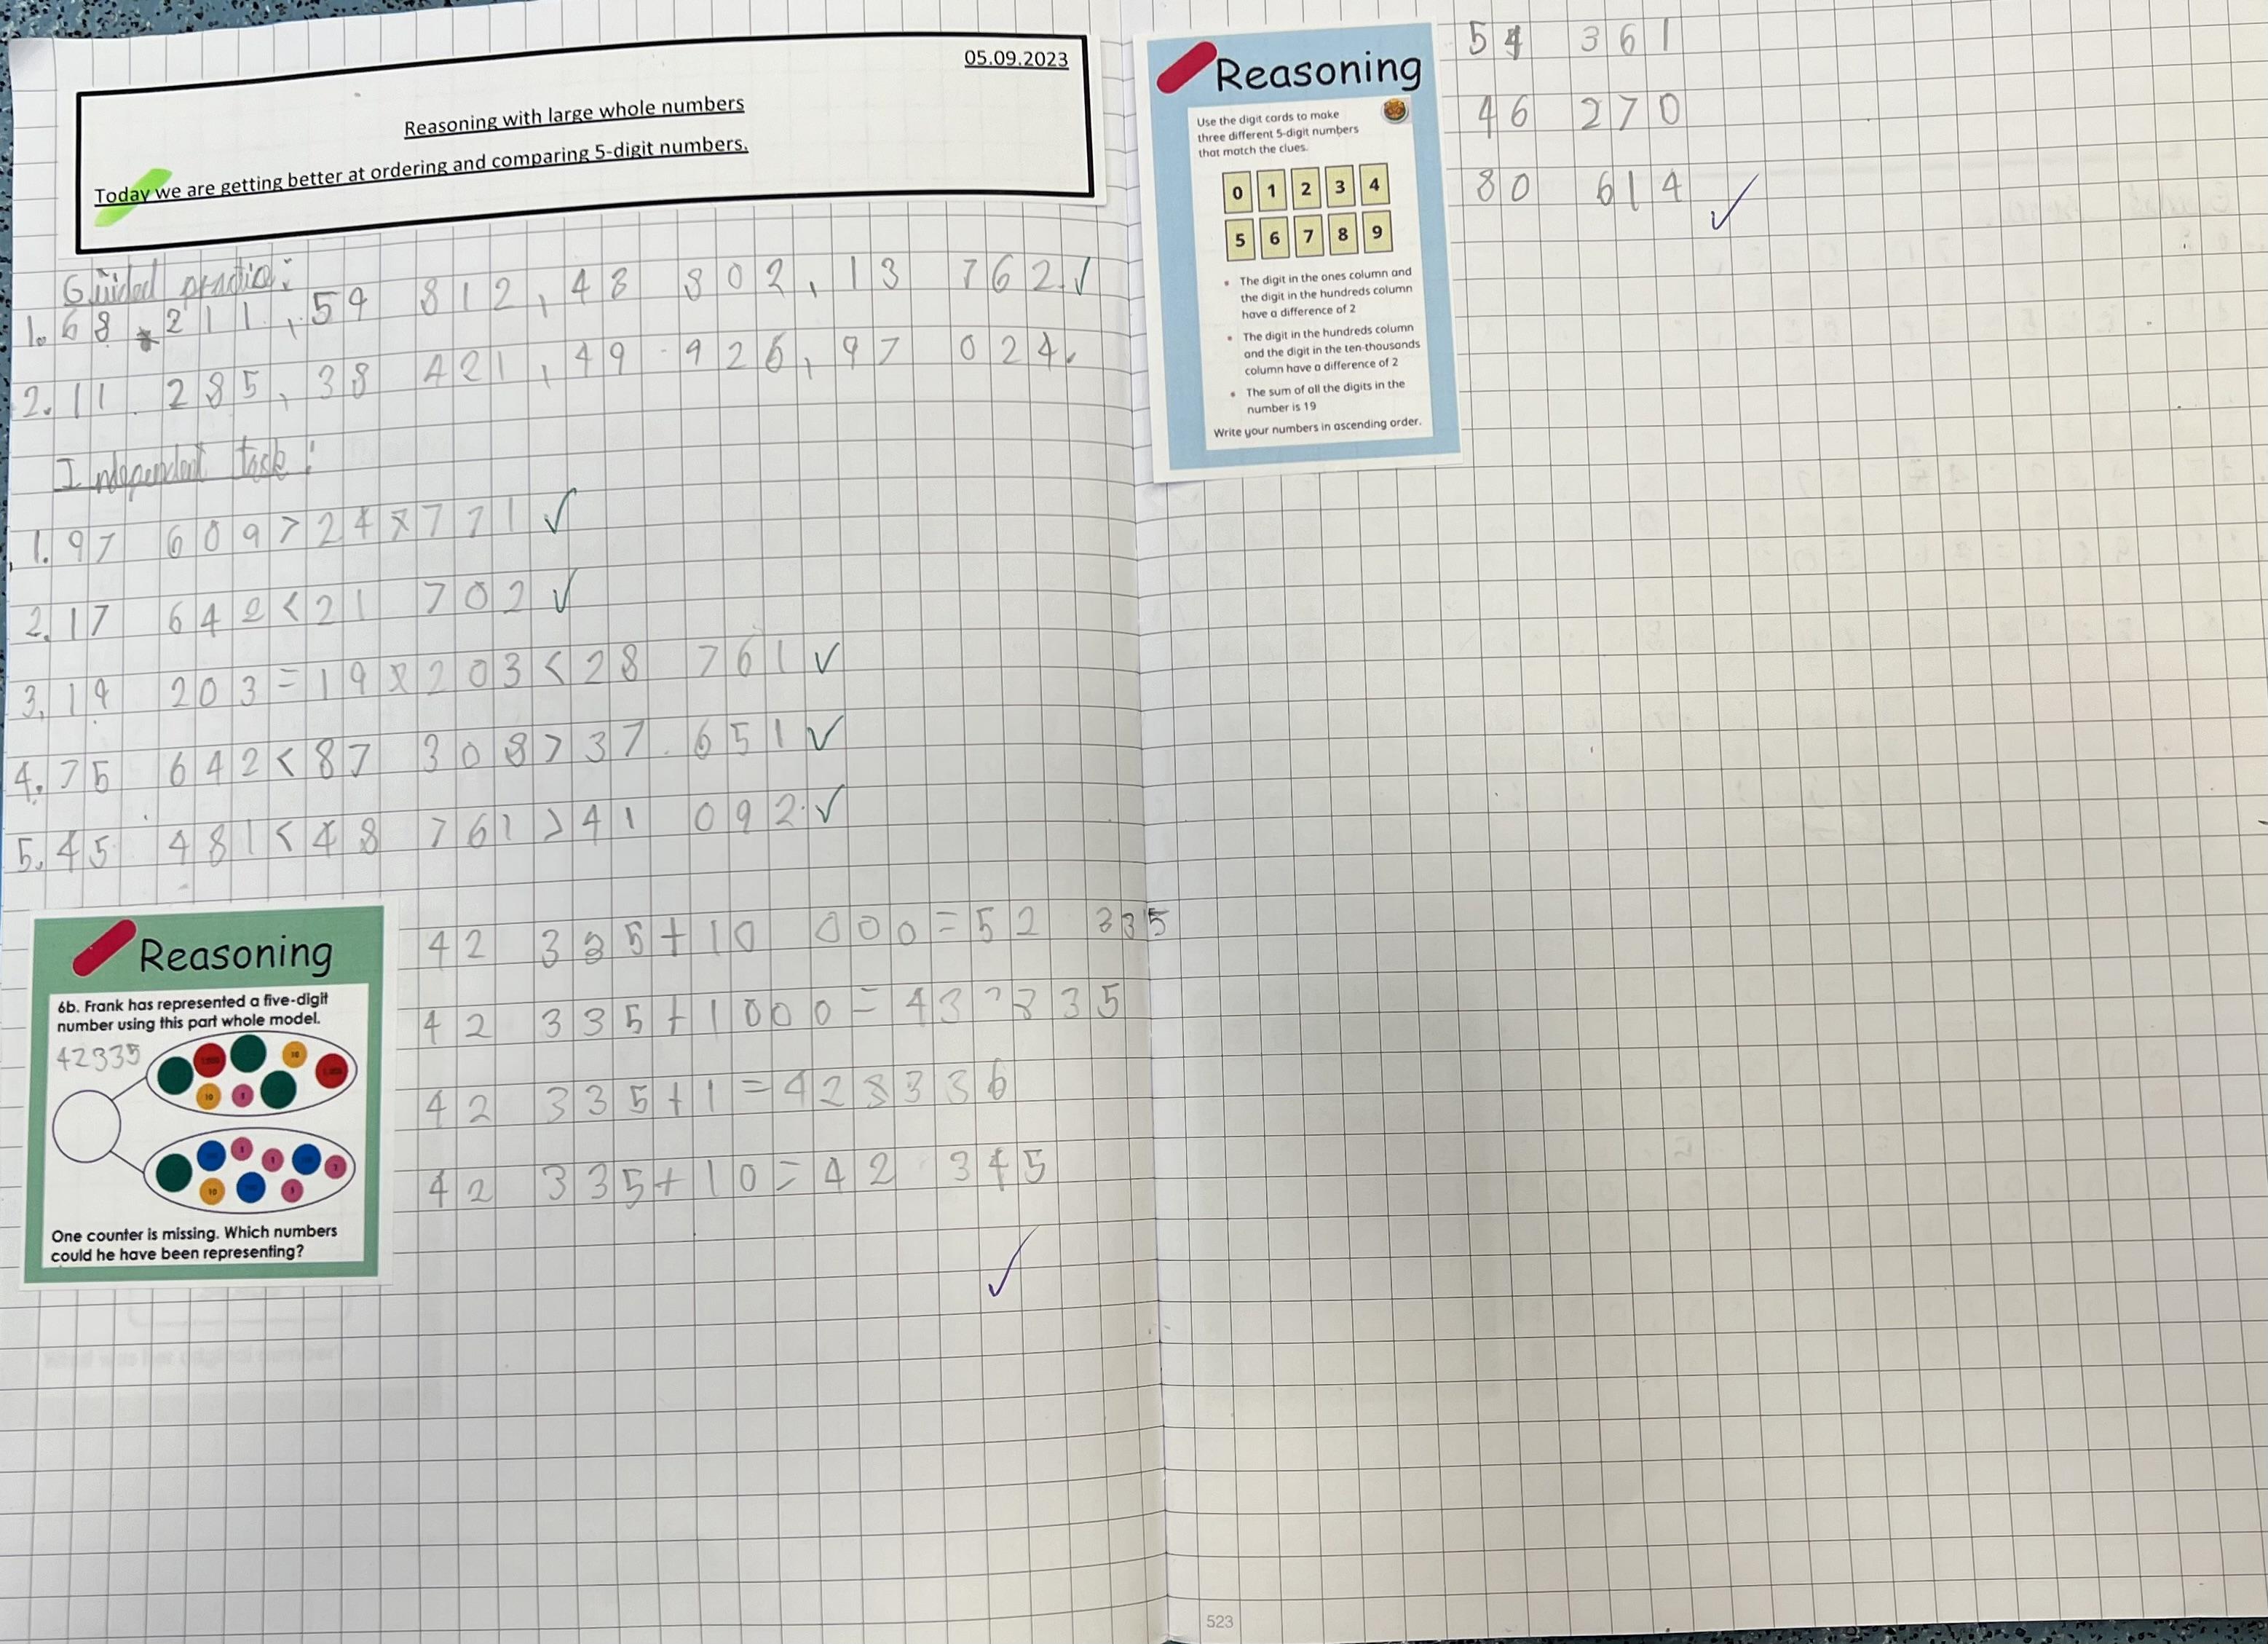 05.09.2023
Reasoning with large whole numbers
Today we are getting better at ordering and comparing 5-digit numbers.
Guided practice:
1. 68 211, 59 812, 48 302, 13 762. ✓
2. 11 285, 38 421, 49 926, 97 024.
Independent task:
1. 97 609 > 24 771 ✓
2. 17 642 < 21 702 ✓
3. 19 203 = 19 203 < 28 761 ✓
4. 75 642 < 87 308 > 37 651 ✓
5. 45 481 < 48 761 > 41 092. ✓
Reasoning
6b. Frank has represented a five-digit
number using this part whole model.
42335
10
10
10
One counter is missing. Which numbers
could he have been representing?
42 335 + 10 000 = 52 335
42 335 + 1000 = 43 335
42 335 + 1 = 42 336
42 335 + 10 = 42 345
✓
Reasoning
Use the digit cards to make
three different 5-digit numbers
that match the clues.
0 1 2 3 4
5 6 7 8 9
• The digit in the ones column and
the digit in the hundreds column
have a difference of 2
• The digit in the hundreds column
and the digit in the ten-thousands
column have a difference of 2
• The sum of all the digits in the
number is 19
Write your numbers in ascending order.
54 361
46 270
80 614 ✓
523